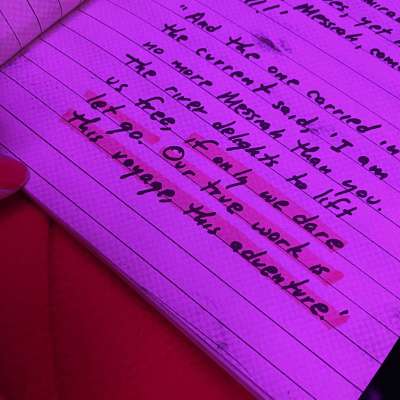 ll!'
Messiah, com
"And the one carried in
the current said, 'I am
no more Messiah than you.
The river delights to lift
us free, if only we dare
let go. Our true work is
this voyage, this adventure.'